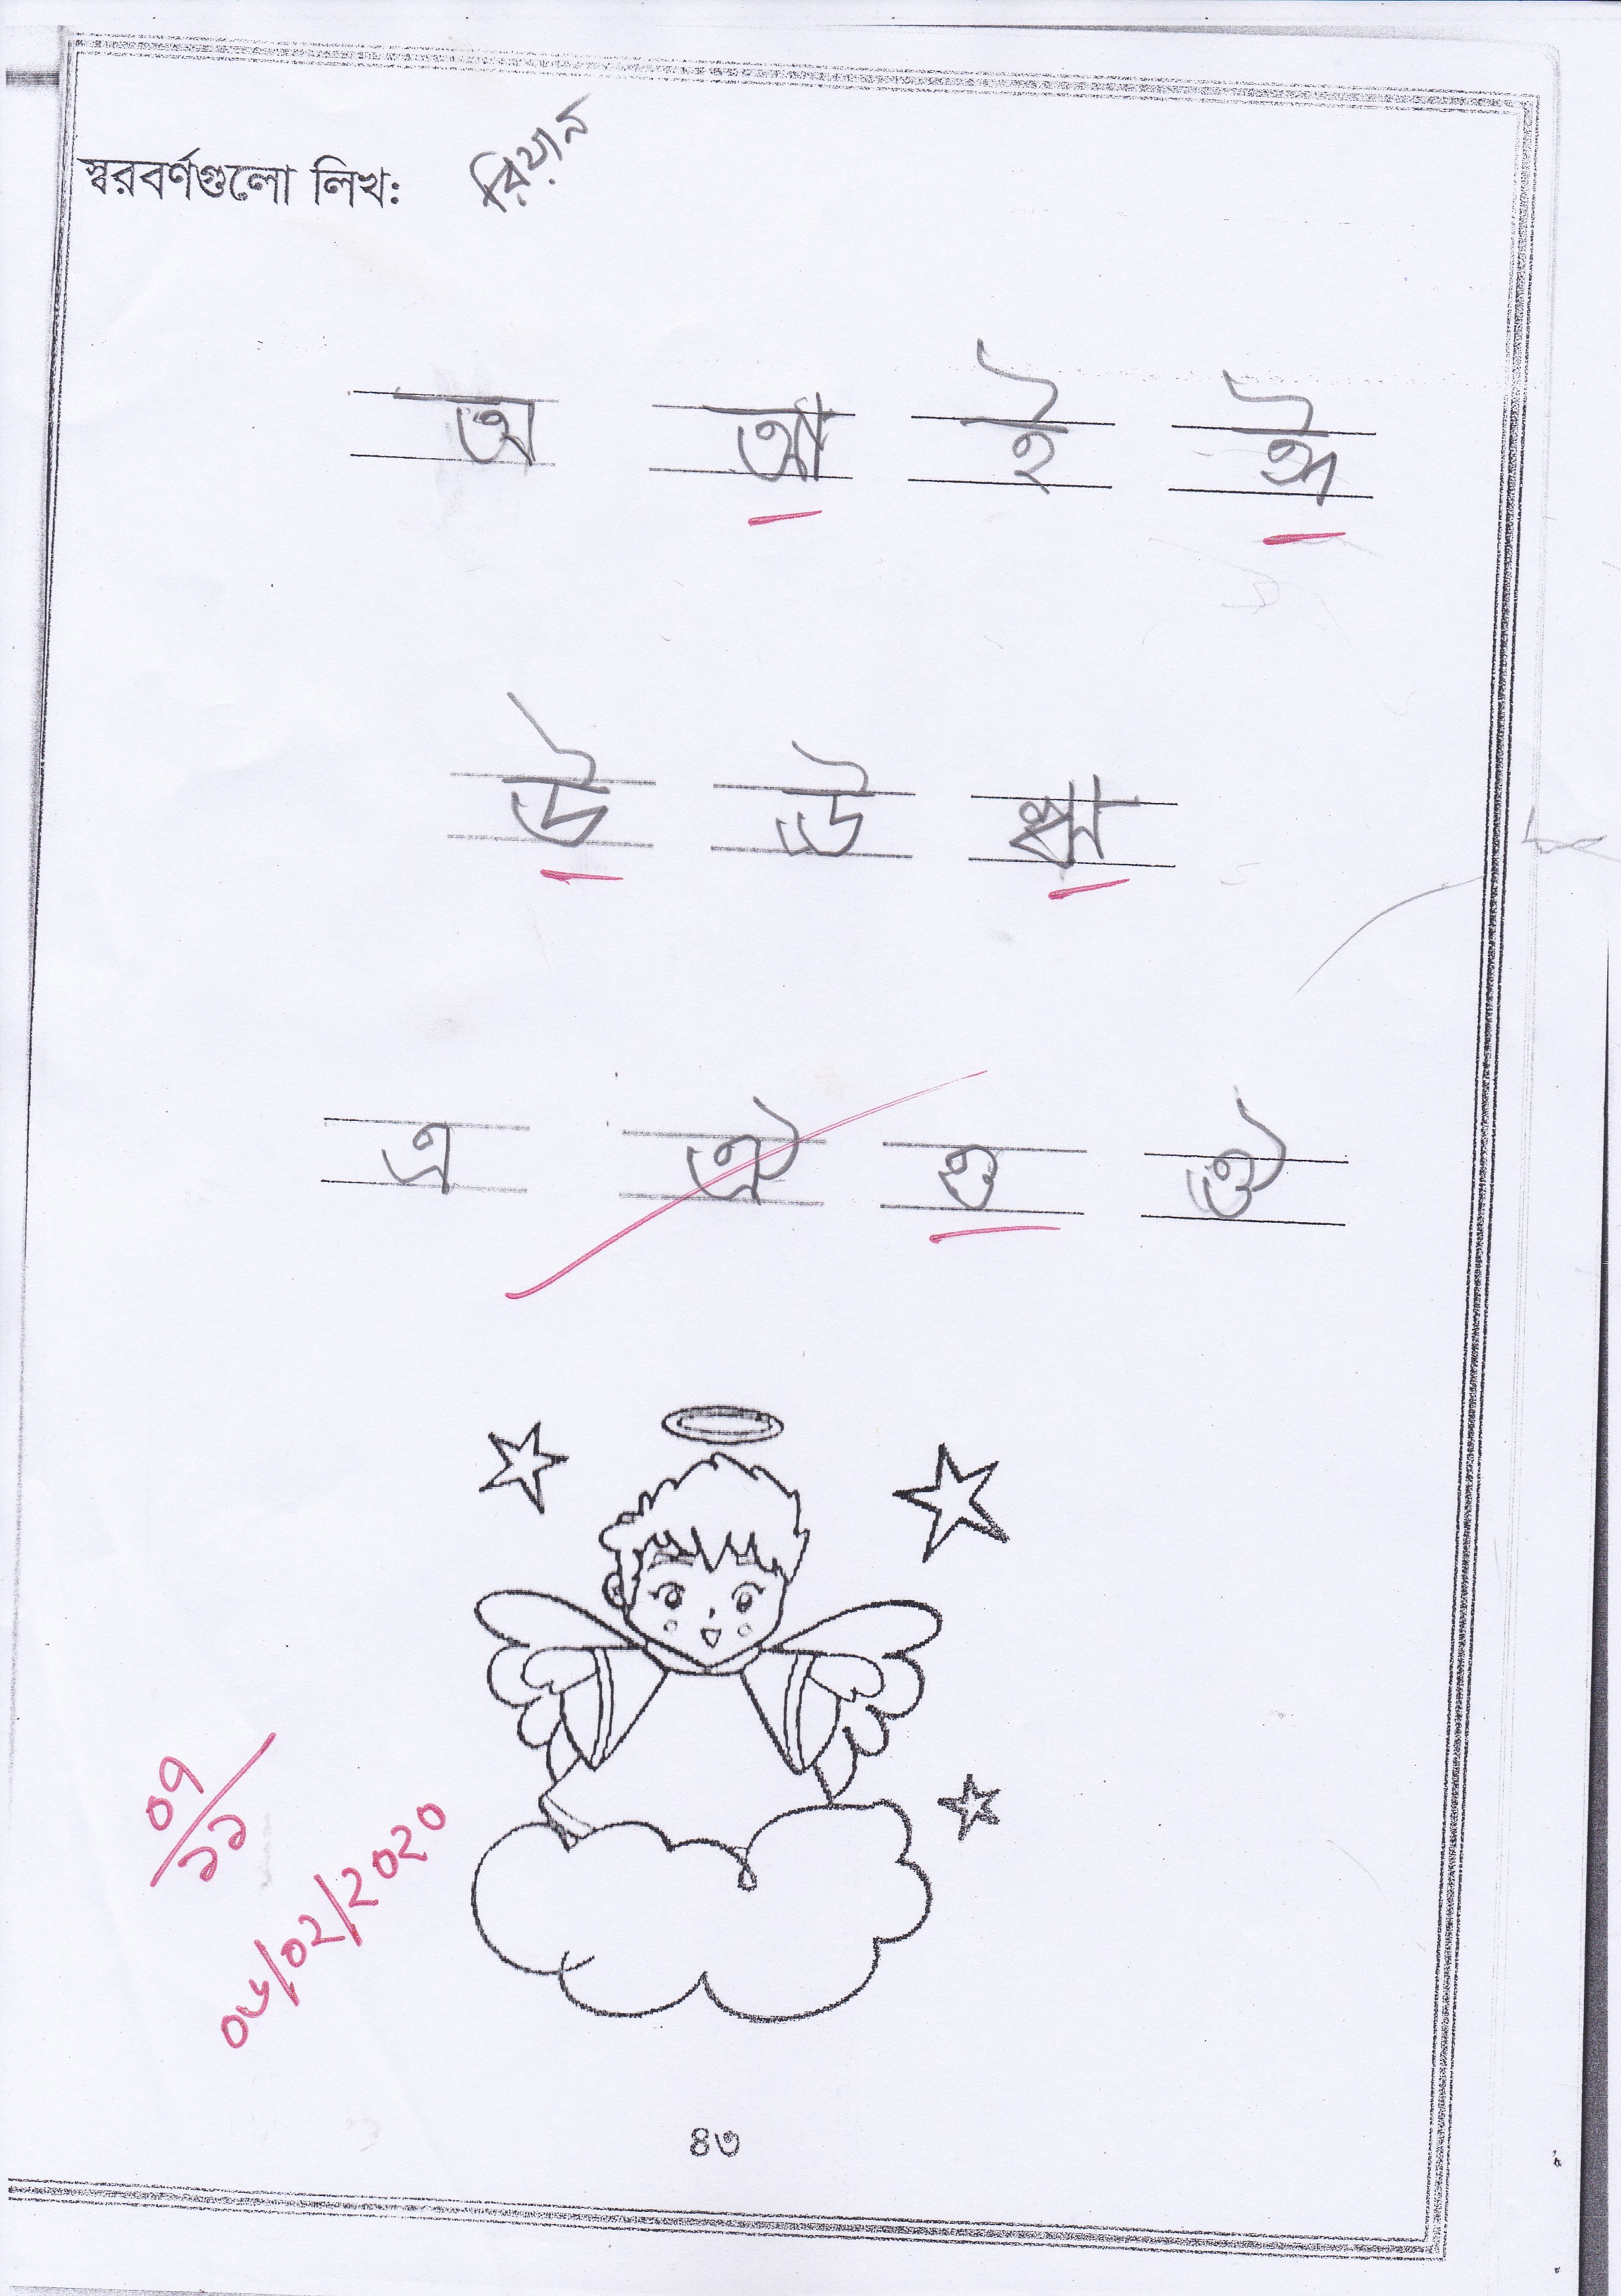 স্বরবর্ণগুলো লিখ: রিয়ান
অ আ ই ঈ
উ ঊ ঋ
এ ঐ ও ঔ
০৭/১১
০৬/০২/২০২০
৪৩